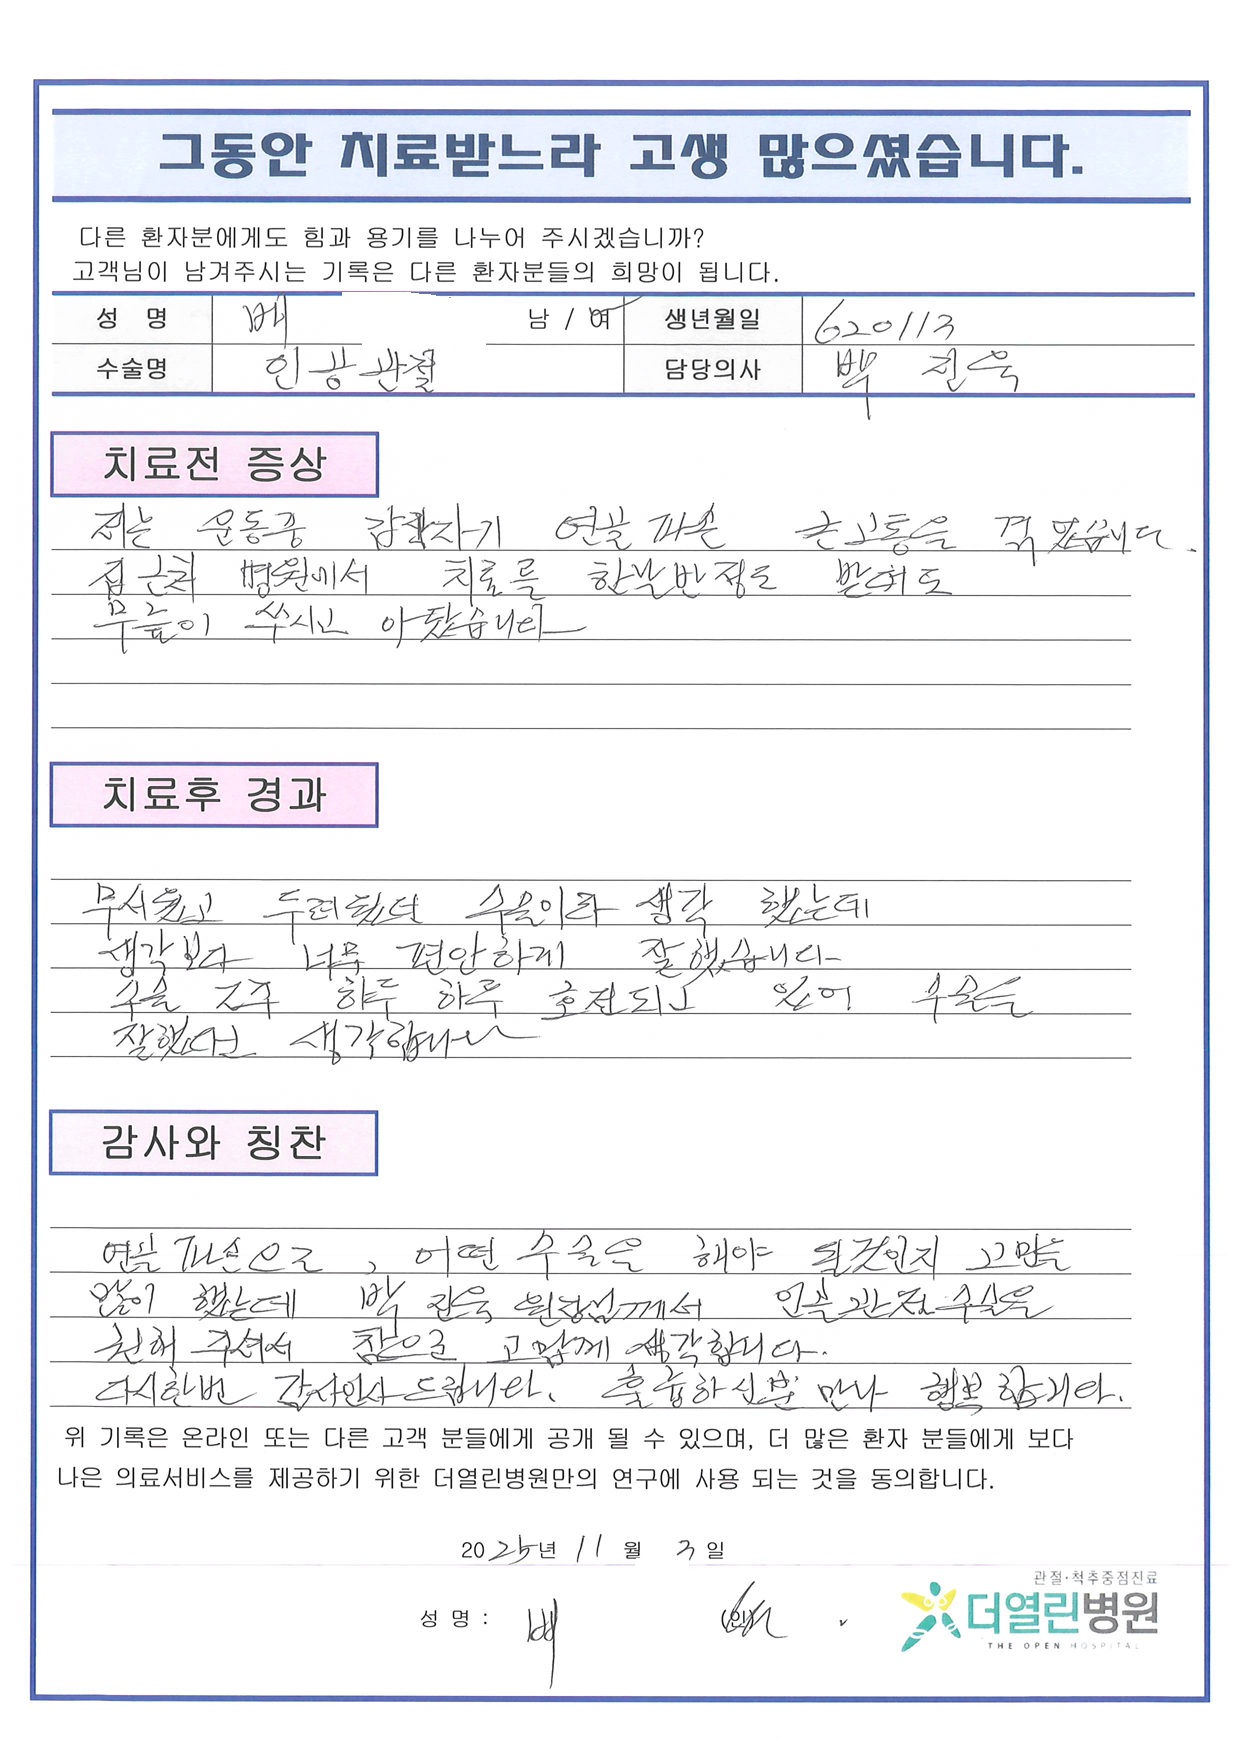 그동안 치료받느라 고생 많으셨습니다.
다른 환자분에게도 힘과 용기를 나누어 주시겠습니까?
고객님이 남겨주시는 기록은 다른 환자분들의 희망이 됩니다.
성 명 배 남 / 여 생년월일 620113
수술명 인공관절 담당의사 백 진욱
치료전 증상
저는 운동중 갑작자기 연골파손 큰고통을 격었습니다.
집근처 병원에서 치료를 한달반정도 받어도
무릎이 쑤시고 아팠습니다
치료후 경과
무서웠고 두려웠던 수술이라 생각 했는데
생각보다 너무 편안하게 잘했습니다
수술 2주 하루 하루 호전되고 있어 수술을
잘했다고 생각합니다
감사와 칭찬
연골파손으로, 어떤 수술을 해야 될것인지 고민을
많이 했는데 백 진욱 원장님께서 인공관절수술을
권해 주셔서 참으로 고맙게 생각합니다.
다시한번 감사인사드립니다. 훌륭하신분 만나 행복합니다.
위 기록은 온라인 또는 다른 고객 분들에게 공개 될 수 있으며, 더 많은 환자 분들에게 보다
나은 의료서비스를 제공하기 위한 더열린병원만의 연구에 사용 되는 것을 동의합니다.
2025년 11월 3일
성 명 : 배 (인)
관절·척추중점진료
더열린병원
THE OPEN HOSPITAL